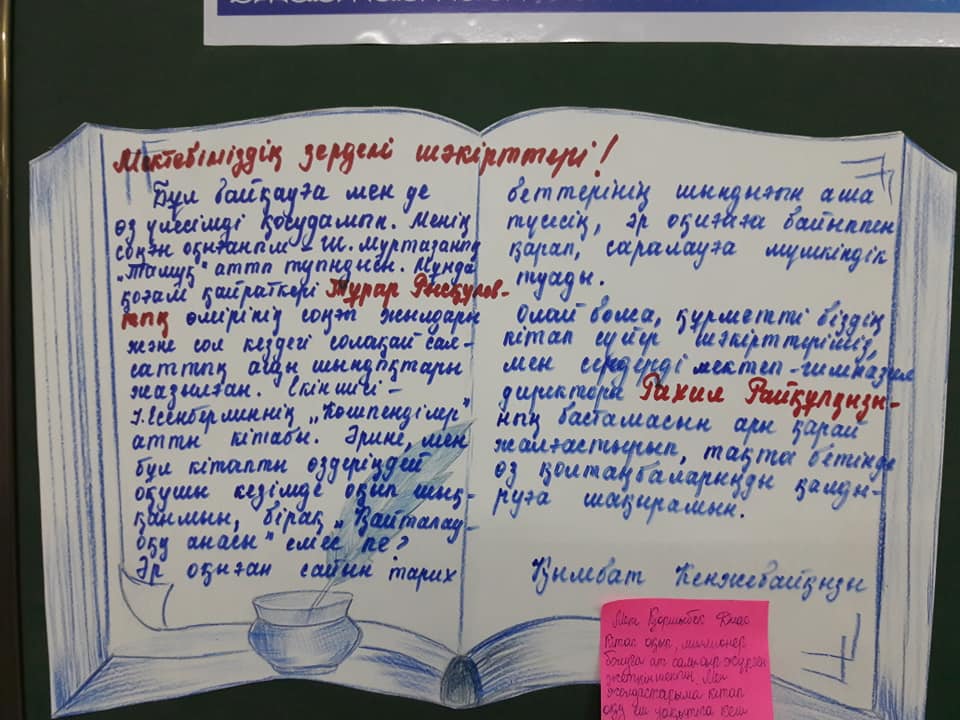 Мектебіміздің зерделі шәкірттері!
Бұл байқауға мен де
өз үлесімді қосудамын. Менің
соңғы оқығаным Ш. Мұртазаның
„Тамұқ" атты туындысы. Мұнда
қоғам қайраткері Тұрар Рысқулов-
тың өмірінің соңғы жылдары
және сол кездегі солақай сая-
саттың ащы шындықтары
жазылған. Екіншісі –
І. Есенберлиннің „Көшпенділер"
атты кітабы. Әрине, мен
бұл кітапты өздеріңдей
оқушы кезімде оқып шық-
қанмын, бірақ „Қайталау-
оқу анасы" емес пе?
Әр оқыған сайын тарих
беттерінің шындығын аша
түсесің, әр оқиғаға байыппен
қарап, саралауға мүмкіндік
туады.
Олай болса, құрметті біздің
кітап сүйер шәкірттеріміз,
мен сендерді мектеп-гимназия
директоры Рахия Райқұлқызы-
ның бастамасын ары қарай
жалғастырып, тақта бетінде
өз қолтаңбаларыңды қалды-
руға шақырамын.
Қымбат Кенжебайқызы
Мен
Кітап оқып, миллионер
болуға ат салысып жүрген
жеткіншекпін. Мен
жолдастарыма кітап
оқу